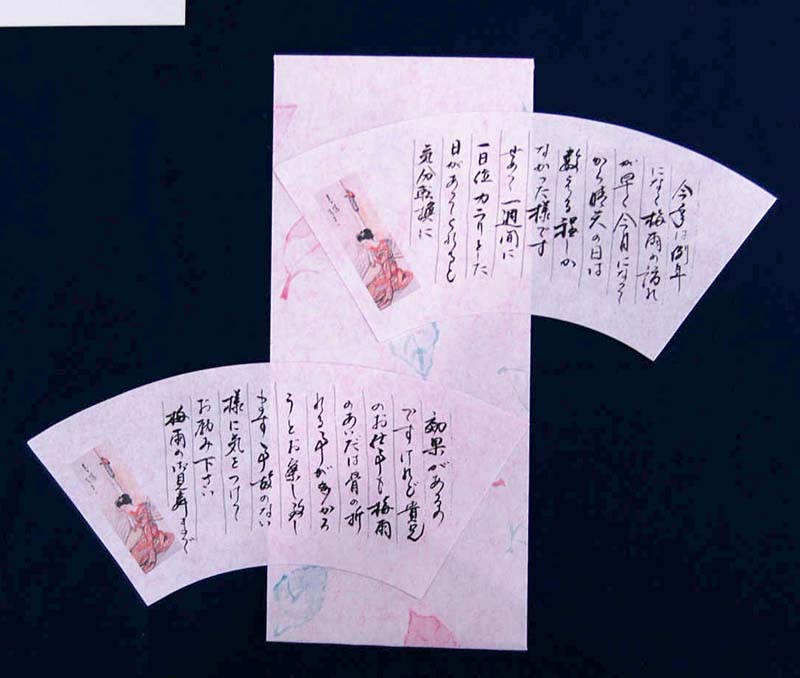 今年は例年
になく梅雨の訪れ
が早く今月になって
から晴天の日は
数える程しか
なかった様です
せめて一週間に
一日位カラリとした
日があってくれると
気分転換に
効果があるの
ですけれど貴兄
のお仕事も梅雨
のあいだは骨の折
れる事が多かろ
うとお察し致し
ます 事故のない
様に気をつけて
お励み下さい
梅雨のお見舞まで